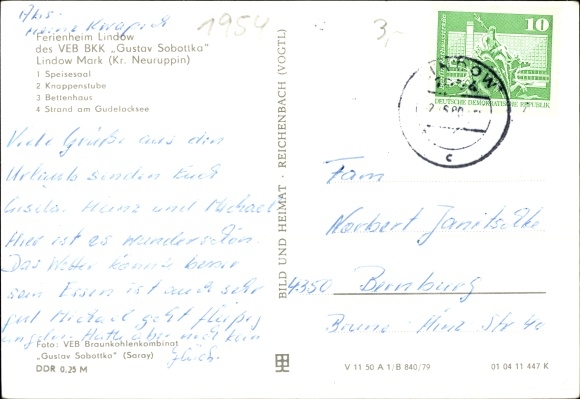 1954
3,-
Ferienheim Lindow
des VEB BKK „Gustav Sobottka"
Lindow Mark (Kr. Neuruppin)
1 Speisesaal
2 Knappenstube
3 Bettenhaus
4 Strand am Gudelacksee
Viele Grüße aus dem
Urlaub senden Euch
Gisela, Heinz und Michael
Hier ist es wunderschön.
Das Wetter könnte besser
sein Essen ist auch sehr
gut Michael geht fleißig
angeln. Hatte aber noch kein
Glück.
Foto: VEB Braunkohlenkombinat
„Gustav Sobottka" (Saray)
DDR 0,25 M
BILD UND HEIMAT · REICHENBACH (VOGTL)
10
DEUTSCHE DEMOKRATISCHE REPUBLIK
LINDOW
c
Fam
Norbert Janitzke
4350 Bernburg
Bruno-Hinz Str 4a
V 11 50 A 1/B 840/79
01 04 11 447 K